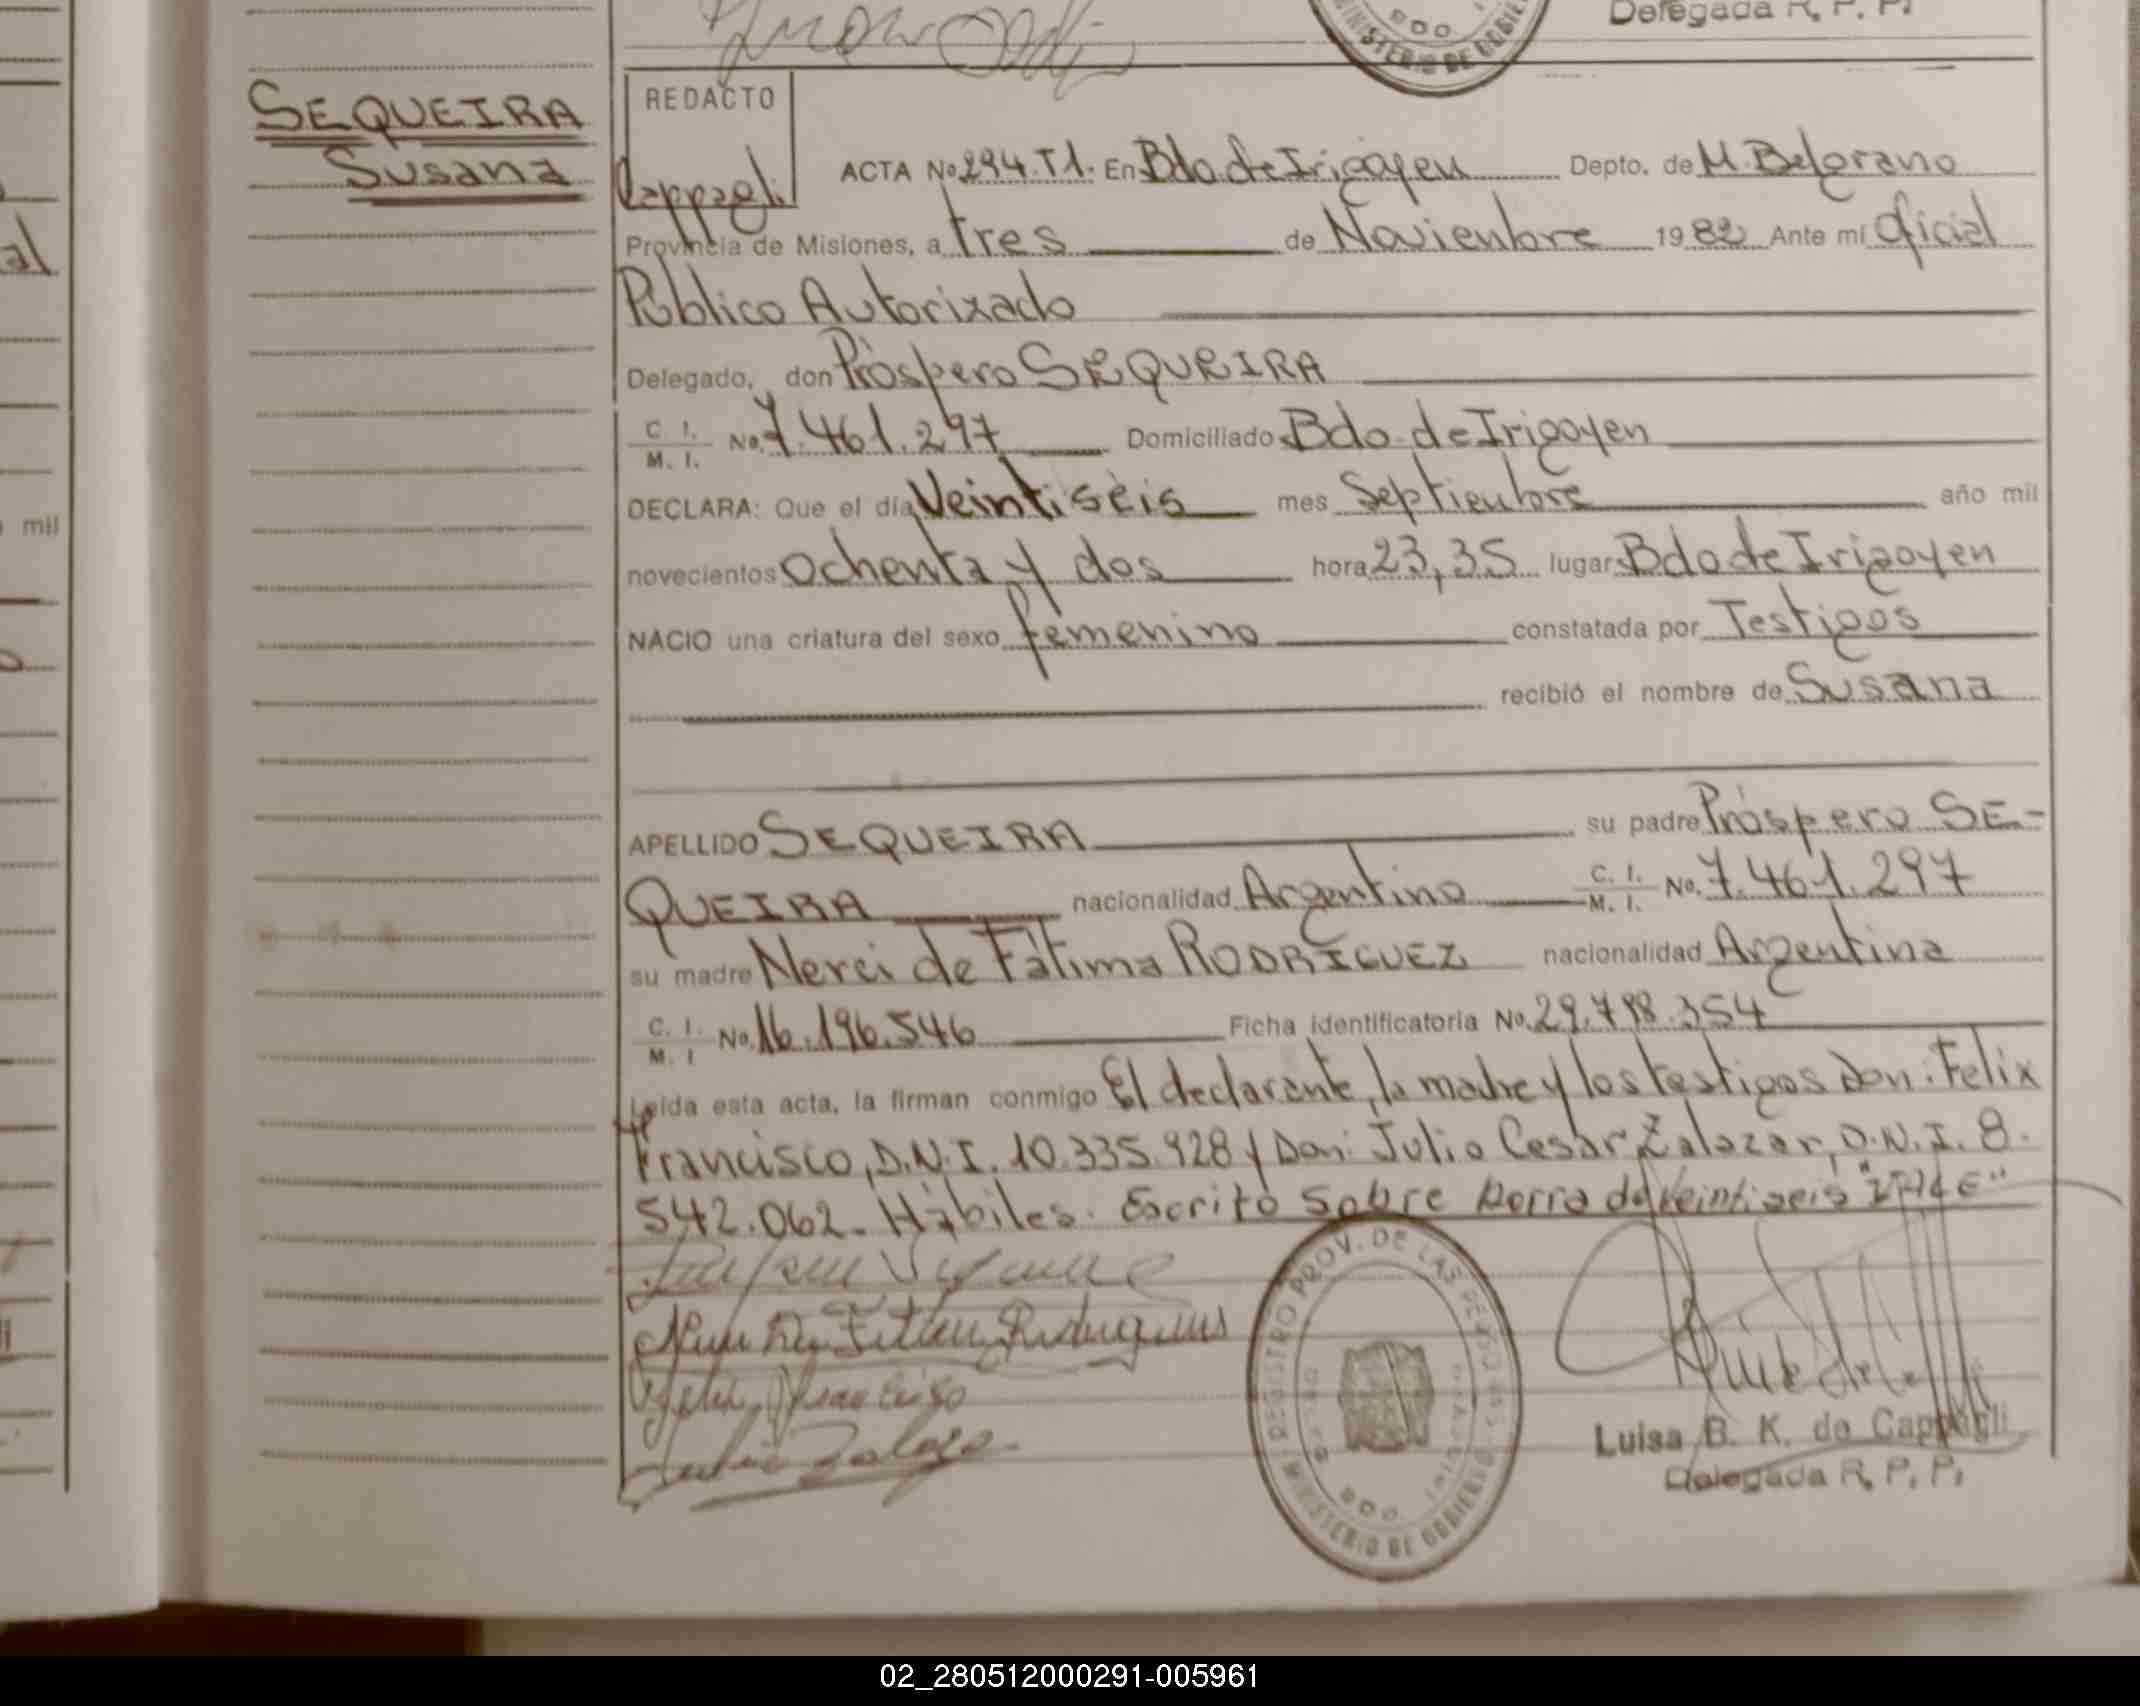 Delegada R. P. P.
MINISTERIO DE GOBIERNO
SEQUEIRA
Susana
REDACTO
Cappagli
ACTA No 294. T1. En Bdo de Irigoyen Depto. de M. Belgrano
Provincia de Misiones, a tres de Noviembre 1982 Ante mí Oficial
Público Autorizado
Delegado, don Próspero SEQUEIRA
C. I.
M. I. No. 7.461.297 Domiciliado Bdo. de Irigoyen
DECLARA: Que el día Veintiséis mes Septiembre año mil
novecientos Ochenta y dos hora 23,35 lugar Bdo de Irigoyen
NACIO una criatura del sexo femenino constatada por Testigos
recibió el nombre de Susana
APELLIDO SEQUEIRA su padre Próspero SE-
QUEIRA nacionalidad Argentino C. I. M. I. No. 7.461.297
su madre Nerci de Fátima RODRIGUEZ nacionalidad Argentina
C. I. M. I No. 16.196.546 Ficha identificatoria No. 29.798.354
Leída esta acta, la firman conmigo El declarante, la madre y los testigos Don: Felix
Francisco, D.N.I. 10.335.928 y Don: Julio Cesar Zalazar, D.N.I. 8.
542.062. Hábiles. Escrito sobre borra do veintiseis "VALE"
REGISTRO PROV. DE LAS PERSONAS
MINISTERIO DE GOBIERNO
Luisa B. K. de Cappagli
Delegada R. P. P.
mil
02_280512000291-005961